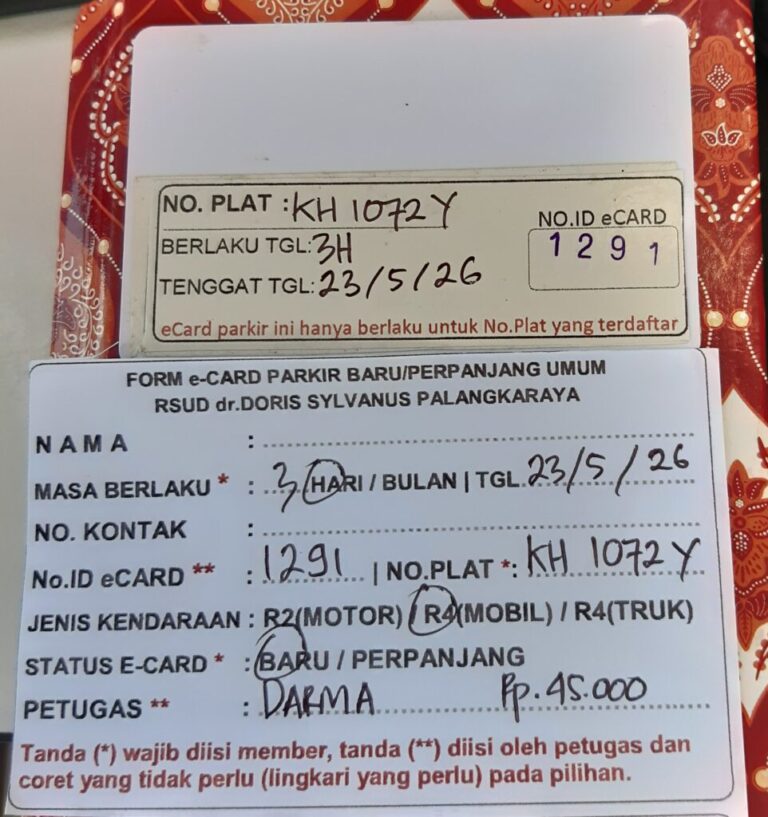 NO. PLAT : KH 1072 Y
NO.ID eCARD
BERLAKU TGL: 3H
1291
TENGGAT TGL: 23/5/26
eCard parkir ini hanya berlaku untuk No.Plat yang terdaftar
FORM e-CARD PARKIR BARU/PERPANJANG UMUM
RSUD dr.DORIS SYLVANUS PALANGKARAYA
NAMA :
MASA BERLAKU * : 3 HARI / BULAN | TGL. 23/5/26
NO. KONTAK :
No.ID eCARD ** : 1291 | NO.PLAT *: KH 1072 Y
JENIS KENDARAAN : R2(MOTOR) / R4(MOBIL) / R4(TRUK)
STATUS E-CARD * : BARU / PERPANJANG
PETUGAS ** : DARMA Rp. 45.000
Tanda (*) wajib diisi member, tanda (**) diisi oleh petugas dan
coret yang tidak perlu (lingkari yang perlu) pada pilihan.